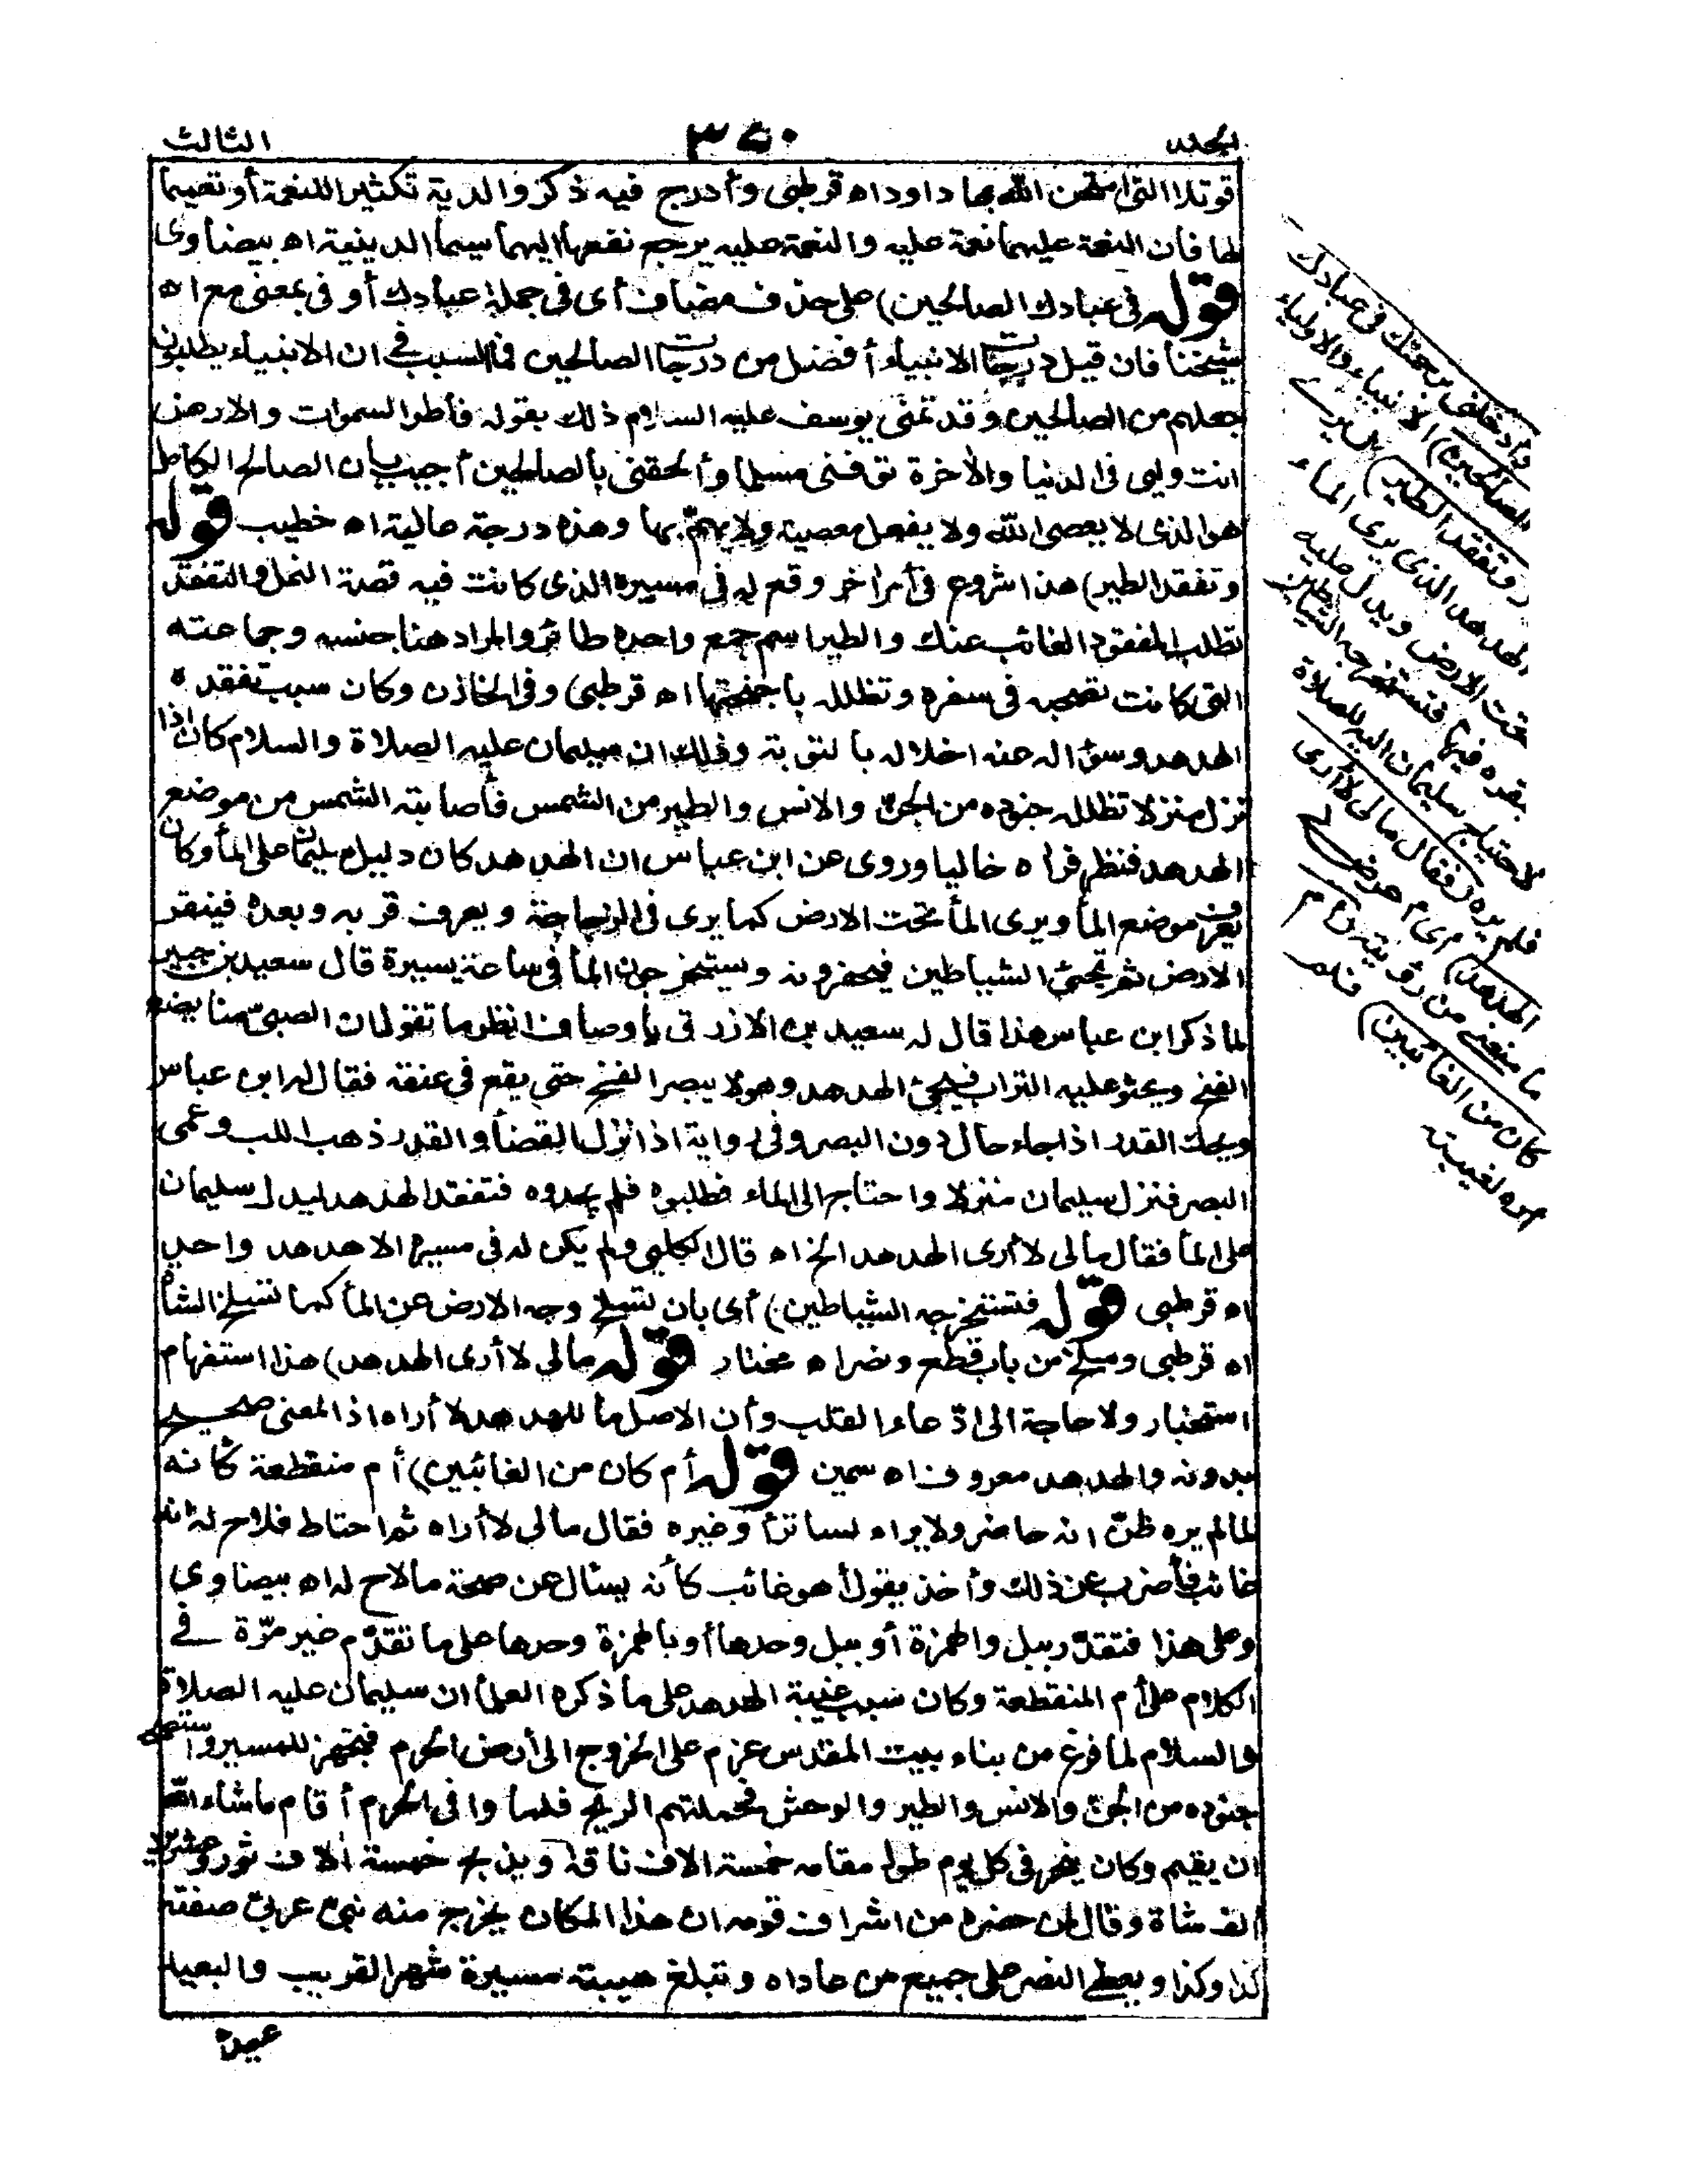 المجلد
٣٥٠
الثالث
قوتلا التى امتحن الله بها داود اه قرطبى وأدرج فيه ذكر والديه تكثيرا للنعمة أو تعميما
لها فان النعمة عليهما نعمة عليه والنعمة عليه يرجع نفعها اليهما سيما الدينية اه بيضاوى
قوله فى عبادك الصالحين) على حذف مضاف أى فى جملة عبادك أو فى بمعنى مع اه
شيخنا فان قيل درجات الانبياء أفضل من درجات الصالحين فما السبب فى ان الانبياء يطلبون
جعلهم من الصالحين وقد تمنى يوسف عليه السلام ذلك بقوله فاطر السموات والارض
انت وليى فى الدنيا والآخرة توفنى مسلما وألحقنى بالصالحين أجيب بان الصالح الكامل
هو الذى لا يعصى الله ولا يفعل معصية ولا يهمّ بها وهذه درجة عالية اه خطيب قوله
وتفقد الطير) هذا شروع فى أمر اخر وقع له فى مسيره الذى كانت فيه قصة النمل والتفقد
تطلب المفقود الغائب عنك والطير اسم جمع واحده طائر والمراد هنا جنسه وجماعته
التى كانت تصحبه فى سفره وتظلله باجنحتها اه قرطبى وفى الخازن وكان سبب تفقده
الهدهد وسؤاله عنه اخلاله بالنوبة وذلك ان سليمان عليه الصلاة والسلام كان اذا
نزل منزلا تظلله جنوده من الجن والانس والطير من الشمس فأصابته الشمس من موضع
الهدهد فنظر فراه خاليا وروى عن ابن عباس ان الهدهد كان دليل سليمان على المأ وكان
يعرف موضع المأ ويرى المأ تحت الارض كما يرى فى الزجاجة ويعرف قربه وبعده فينقر
الارض ثم تجئ الشياطين فيحفرونه ويستخرجون المأ فى ساعة يسيرة قال سعيد بن جبير
لما ذكر ابن عباس هذا قال له سعيد بن الازرق يا وصاف انظر ما تقول ان الصبى منا يضع
الفخ ويحثو عليه التراب فيجئ الهدهد وهو لا يبصر الفخ حتى يقع فى عنقه فقال له ابن عباس
ويحك القدر اذا جاء حال دون البصر وفى رواية اذا نزل القضأ والقدر ذهب اللب وعمى
البصر فنزل سليمان منزلا واحتاج الى الماء فطلبوه فلم يجدوه فتفقد الهدهد ليدل سليمان
على المأ فقال مالى لا أرى الهدهد الخ اه قال الكلبى ولم يكن له فى مسيره الا هدهد واحد
اه قرطبى قوله فتستخرجه الشياطين) أى بان تسلخ وجه الارض عن المأ كما تسلخ الشاة
اه قرطبى وسلخ من باب قطع ونصر اه مختار قوله مالى لا أرى الهدهد) هذا استفهام
استخبار ولا حاجة الى ادّعاء القلب وأن الاصل ما للهدهد لا أراه اذ المعنى صحيح
بدونه والهدهد معروف اه سمين قوله أم كان من الغائبين) أم منقطعة كأنه
لما لم يره ظنّ انه حاضر ولا يراه لساتر أو غيره فقال مالى لا أراه ثم احتاط فلاح له انه
غائب فأضرب عن ذلك وأخذ يقول أهو غائب كأنه يسأل عن صحة ما لاح له اه بيضاوى
وعلى هذا فتقدّر ببل والهمزة أو ببل وحدها أو بالهمزة وحدها على ما تقدّم غير مرّة فى
الكلام على أم المنقطعة وكان سبب غيبة الهدهد على ما ذكره العلمأ ان سليمان عليه الصلاة
والسلام لما فرغ من بناء بيت المقدس عزم على الخروج الى أرض الحرم فتجهز للمسير واستصحب
جنوده من الجن والانس والطير والوحش فحملتهم الريح فلما وافى الحرم أقام ما شاء الله
ان يقيم وكان ينحر فى كل يوم طول مقامه خمسة الاف ناقة ويذبح خمسة الاف ثور وعشرين
ألف شاة وقال لمن حضره من اشراف قومه ان هذا المكان يخرج منه نبى عربى صفته
كذا وكذا ويعطى النصر على جميع من عاداه وتبلغ هيبته مسيرة شهر القريب والبعيد
عنده
وادخلنى برحمتك فى عبادك
الصالحين) الانبياء والاولياء
(وتفقد الطير) ليرى
الهدهد الذى يرى الماء
تحت الارض ويدل عليه
بنقره فيها فتستخرجه الشياطين
لاحتياج سليمان اليه للصلاة
فلم يره (فقال مالى لا أرى
الهدهد) أى أعرض لى
ما منعنى من رؤيته (أم
كان من الغائبين) فلم
أره لغيبته